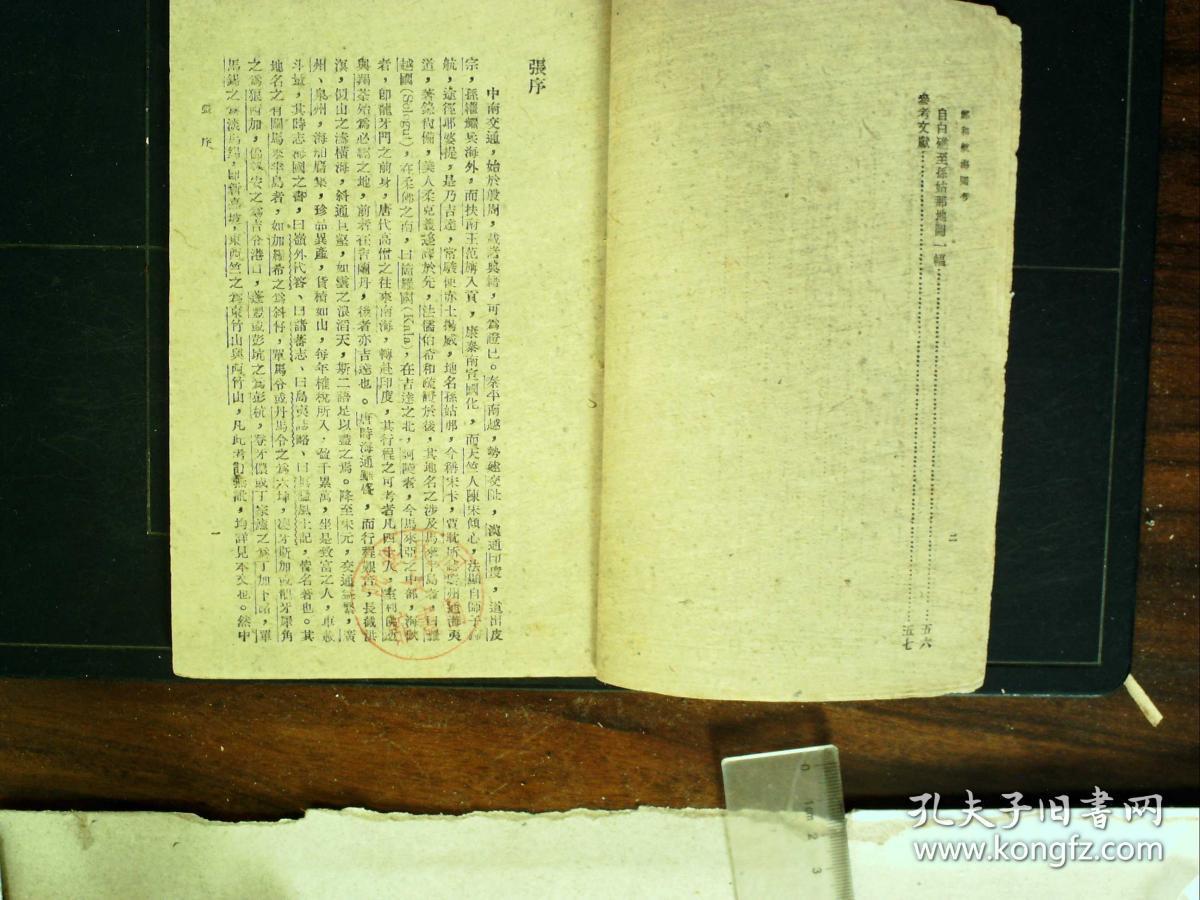 鄭和航海圖考
自白礁至孫姑那地圖一幅……五六
參考文獻……五七
二
張序
中南交通，始於殷周，載老典籍，可為證已。秦平南越，勢達交趾，漢通印度，道出皮
宗，孫權耀兵海外，而扶南王范旃入貢，康泰南宣國化，而天竺人陳宋傾心，法顯自師子
航，途徑耶婆提，是乃吉達，常駿使赤土揚威，地名孫姑那，今稱宋卡，賈耽所誌廣州通海夷
道，著錄攸備，美人柔克義迻譯於先，法儒伯希和疏證於後，其地名之涉及馬來半島者，曰羅
越國(Selugut)，在柔佛之南，曰箇羅國(Kala)，在吉達之北，訶陵者，今馬來亞之中部，海硤
者，即龍牙門之前身，唐代高僧之往來南海，轉赴印度，其行程之可考者凡四十人，室利佛逝
與羯荼殆為必經之地，前者在吉蘭丹，後者亦吉達也。唐時海通雖繁，而行程艱苦，長截洪
溟，似山之濤橫海，斜通巨壑，如雲之浪滔天，斯二語足以盡之焉。降至宋元，交通益繁，廣
州、泉州，海舶麕集，珍品異產，貨積如山，每年榷稅所入，盈千累萬，坐是致富之人，車載
斗量，其時志海國之書，曰嶺外代答、曰諸蕃志、曰島夷誌略、曰真臘風土記，皆名著也。其
地名之有關馬來半島者，如加羅希之為斜仔，單馬令或丹馬令之為六坤，凌牙斯加或龍牙犀角
之為狼西加，佛羅安之為吉令港口，蓬豐或彭坑之為彭杭，登牙儂或丁家廬之為丁加下路，單
馬錫之為淡馬錫，即新嘉坡，東西竺之為東竹山與西竹山，凡此考訂無訛，均詳見本文也。然中
張序
一
孔夫子旧書网
www.kongfz.com
0 1cm 2 3